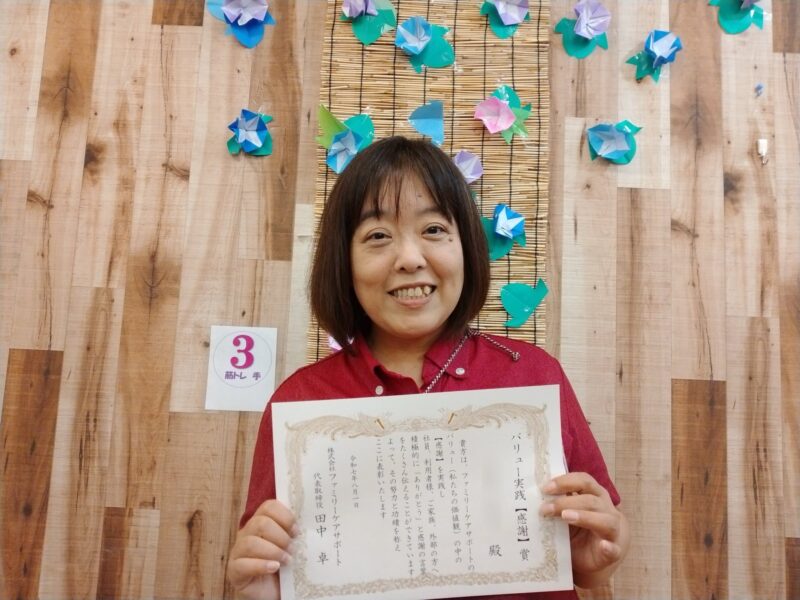 3
筋トレ 手
バリュー実践【感謝】賞
殿
貴方は、ファミリーケアサポートの
バリュー（私たちの価値観）の中の
【感謝】を実践し
社員、利用者様、ご家族、外部の方へ
積極的に「ありがとう」と感謝の言葉
をたくさん伝えることができています
よって、その努力と功績を称え
ここに表彰いたします
令和七年八月一日
株式会社ファミリーケアサポート
代表取締役 田中 卓